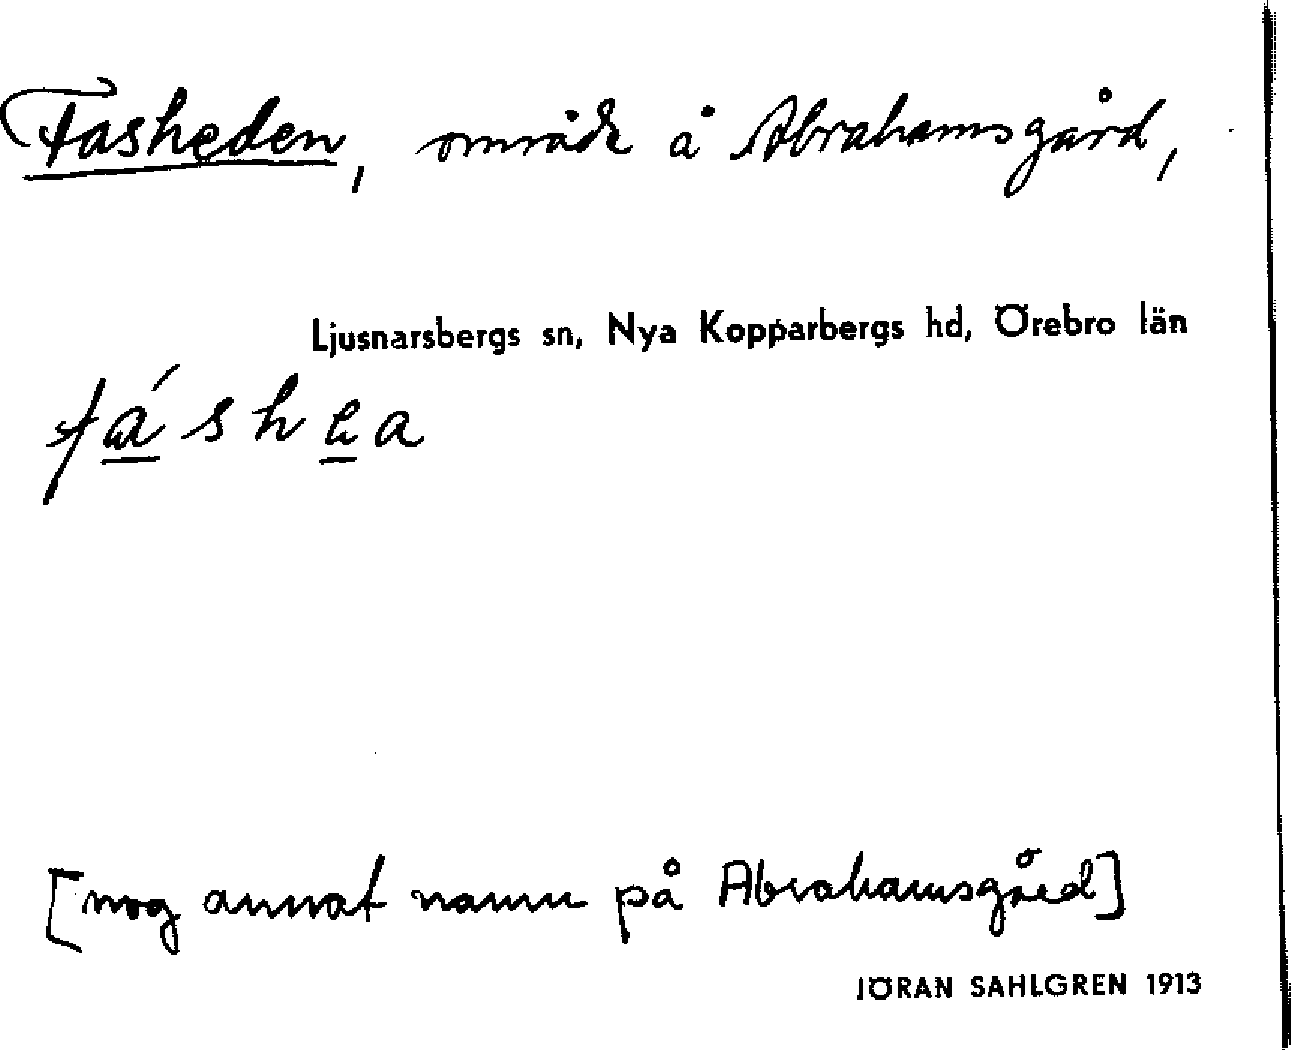 Fasheden, område å Abrahamsgård,
Ljusnarsbergs sn, Nya Kopparbergs hd, Örebro län
fáshea
[nog annat namn på Abrahamsgård]
JÖRAN SAHLGREN 1913